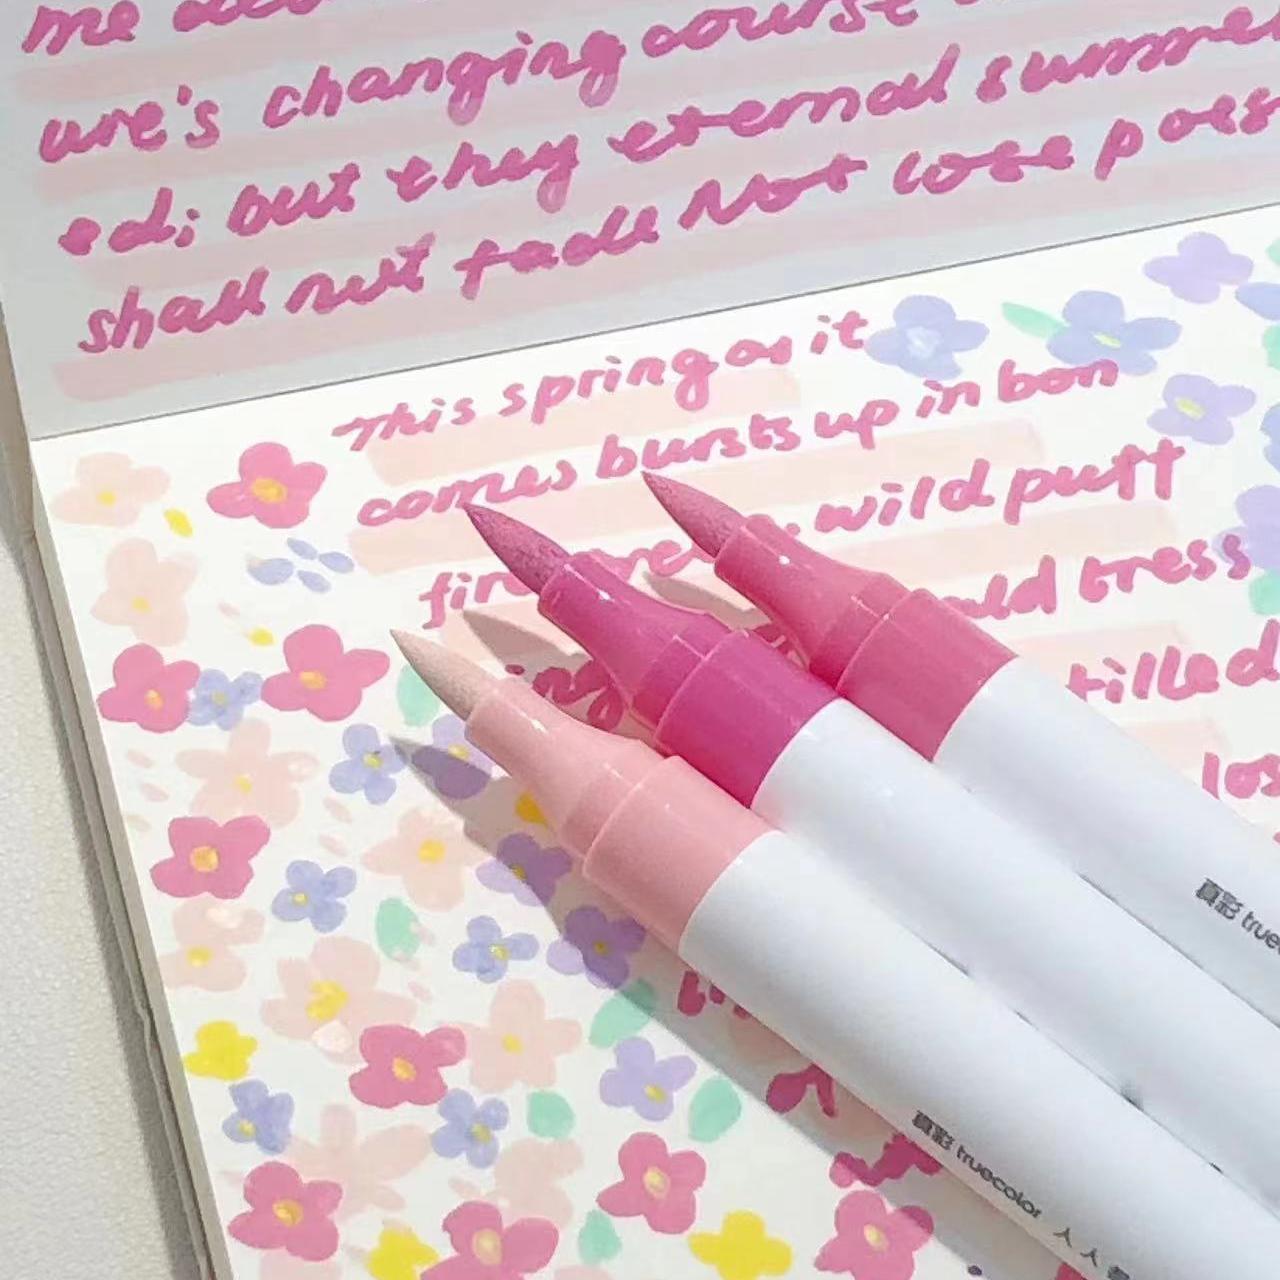 me
ure's changing course
ed; but they eternal summer
shall not fade Not lose poss
This spring as it
comes bursts up in bon
fire wild puff
tress
tilled
los
真彩 truecolor
真彩 true